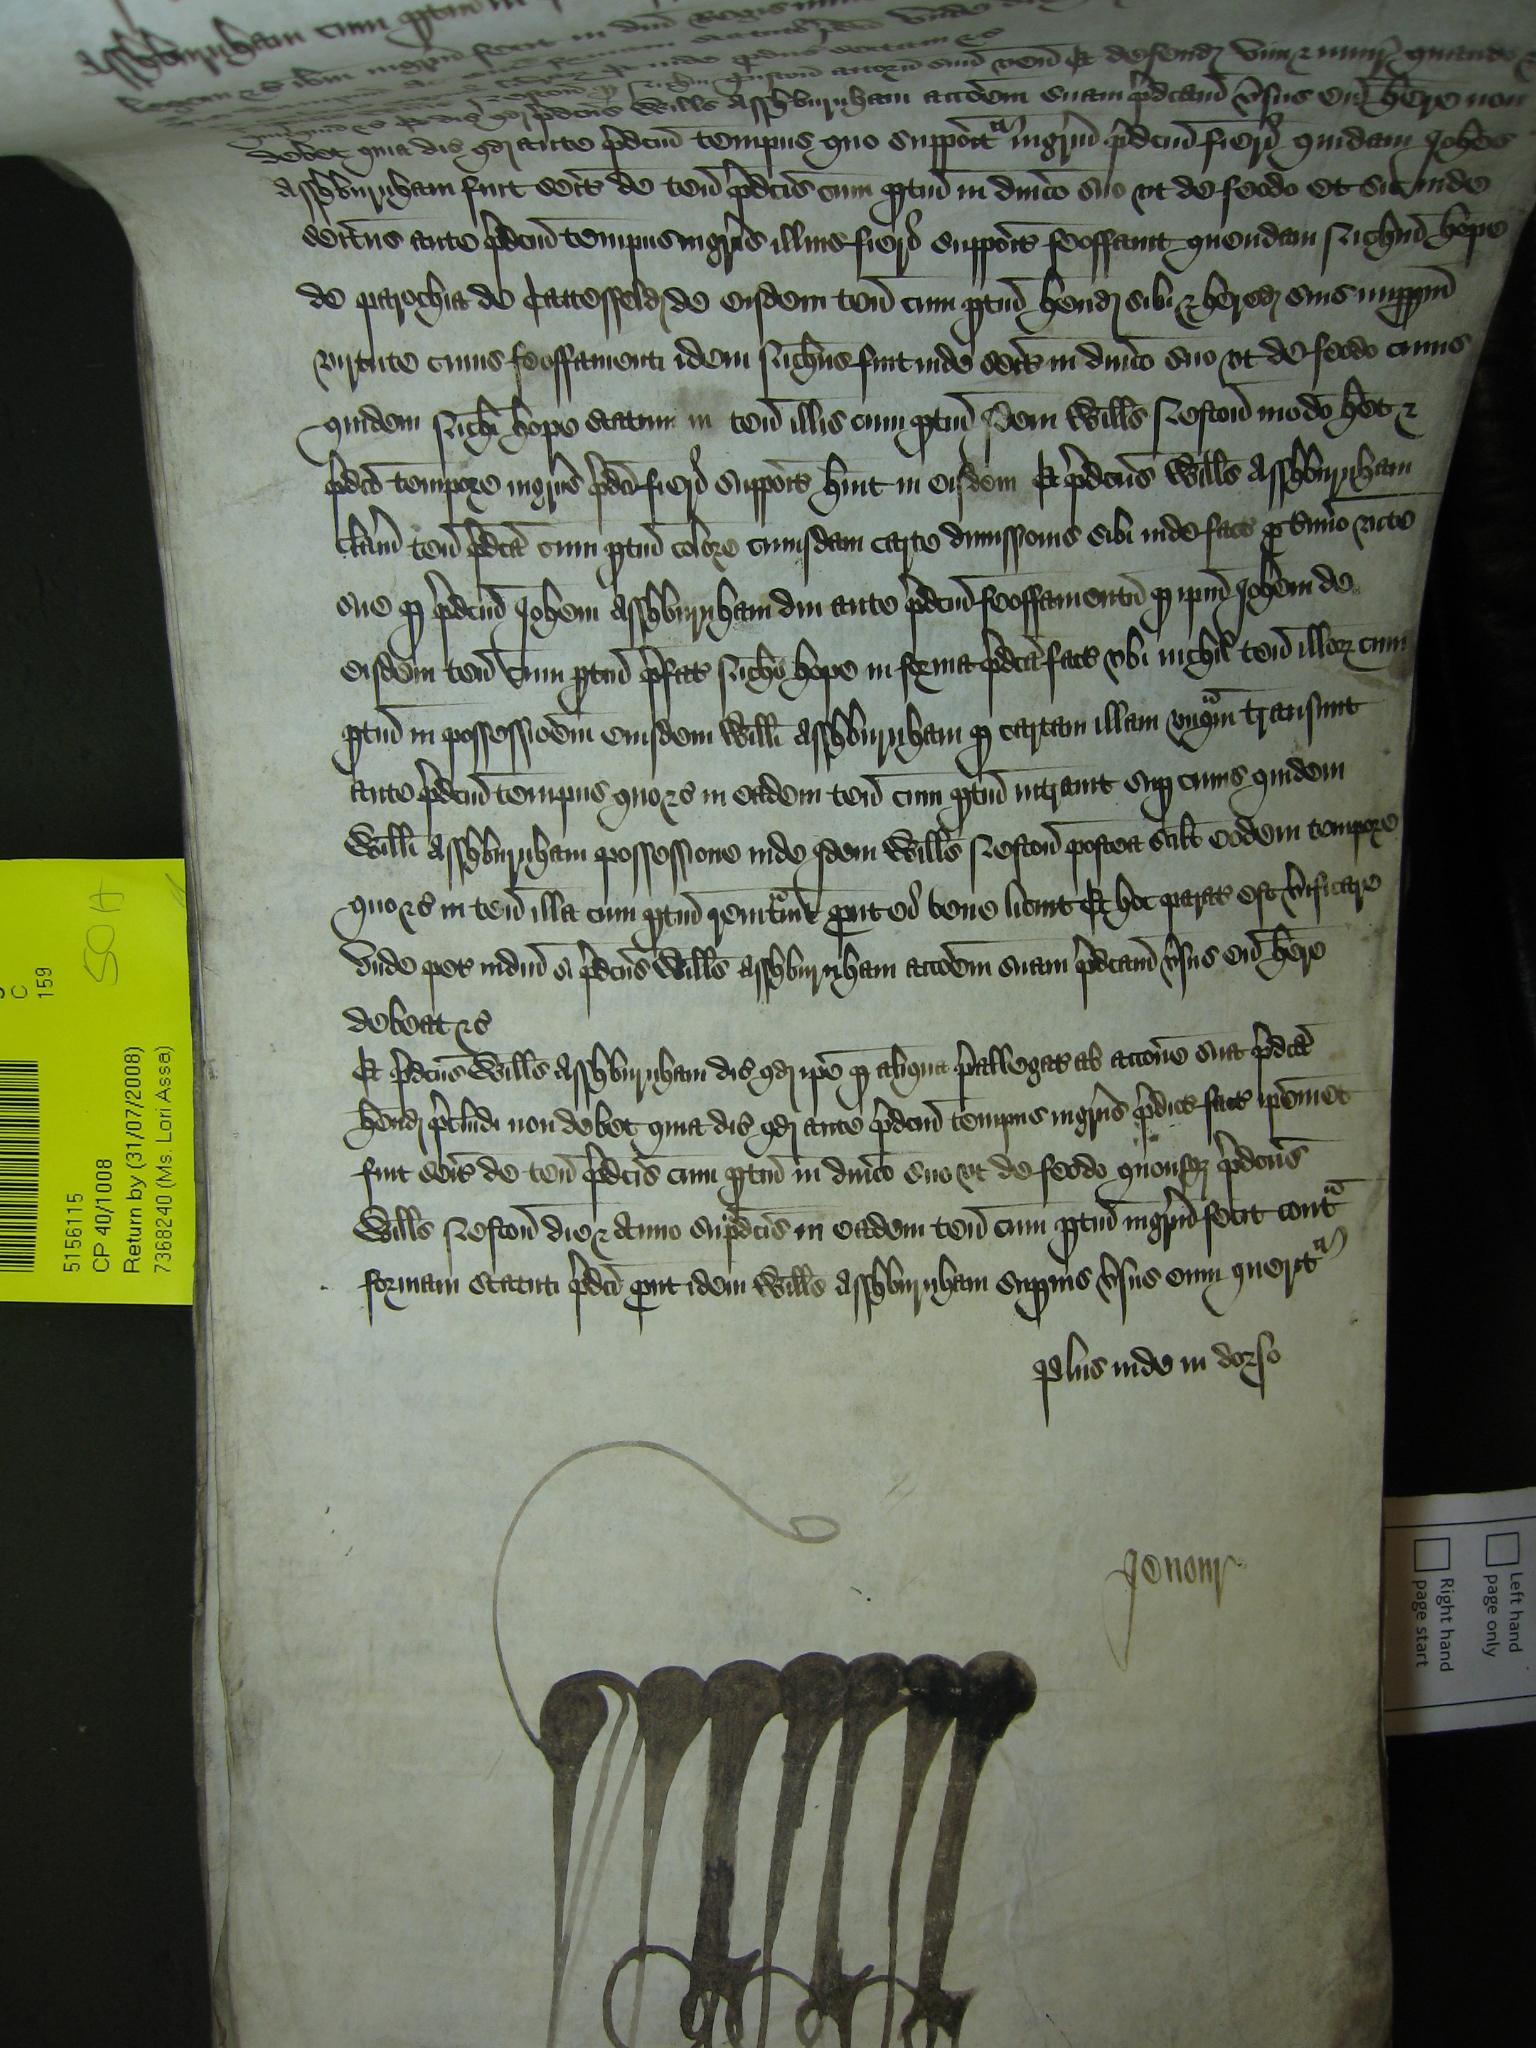 Asshburnham cum ptin in
debet quia dic qd ante pdcm tempus quo supponit ingrm pdcm fieri quidam Johes
Asshburnham fuit seit de ten pdcis cum ptin in dnico suo ut de feodo et sic inde
seitus ante pdcm tempus ingrus illius fieri supposit feoffavit quendam Ricm Hope
de parochia de Cattesfeld de eisdem ten cum ptin hend sibi & hered suis imppm
virtute cuius feoffamenti idem Ricus fuit inde seit in dnico suo ut de feodo cuius
quidem Rici Hope statum in ten illis cum ptin idem Wills Refton modo het &
pdco tempore ingrus pdci fieri supposit huit in eisdem Et pdcus Wills Asshburnham
clam ten pdca cum ptin colore cuiusdam carte dimissionis sibi inde fact p tmino vite
sue p pdcm Johem Asshburnham diu ante pdcm feoffamentu p ipm Johem de
eisdem ten cum ptin pfat Rico Hope in forma pdca fact ubi nichil ten illor cum
ptin in possessionem eiusdem Willi Asshburnham p cartam illam unqam transivit
ante pdcm tempus quo &c in eadem ten cum ptin intravit sup cuius quidem
Willi Asshburnham possessione inde idem Wills Refton postea scilt eodem tempore
quo &c in ten illa cum ptin reintavit put ei bene licuit Et hoc parat est vificare
Unde pet iudm si pdcus Wills Asshburnham accoem suam pdcam vsus eum here
debeat &c
Et pdcus Wills Asshburnham dic qd ipe p aliqua pallegat ab accone sua pdca
hend pcludi non debet quia dic qd ante pdcm tempus ingrus pdict fact ipemet
fuit seit de ten pdcis cum ptin in dnico suo ut de feodo quousq pdcus
Wills Refton die & anno supdcis in eadem ten cum ptin ingrm fecit conta
formam statuti pdci put idem Wills Asshburnham supius vsus eum querit
Plus inde in dorso
Jenour
SOH
C
159
5156115
CP 40/1008
Return by (31/07/2008)
7368240 (Ms. Lori Assa)
Left hand
page only
Right hand
page start